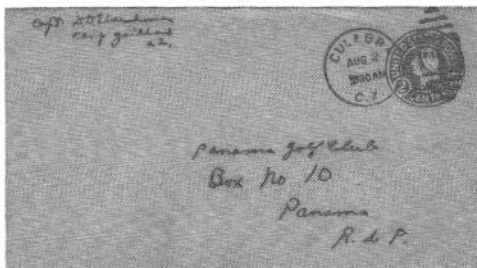 Capt.
Camp Gaillard
C.Z.
CULEBRA
AUG 2
30 AM
C.Z.
UNITED STATES
2
Panama Golf Club
Box No 10
Panama
R. de P.